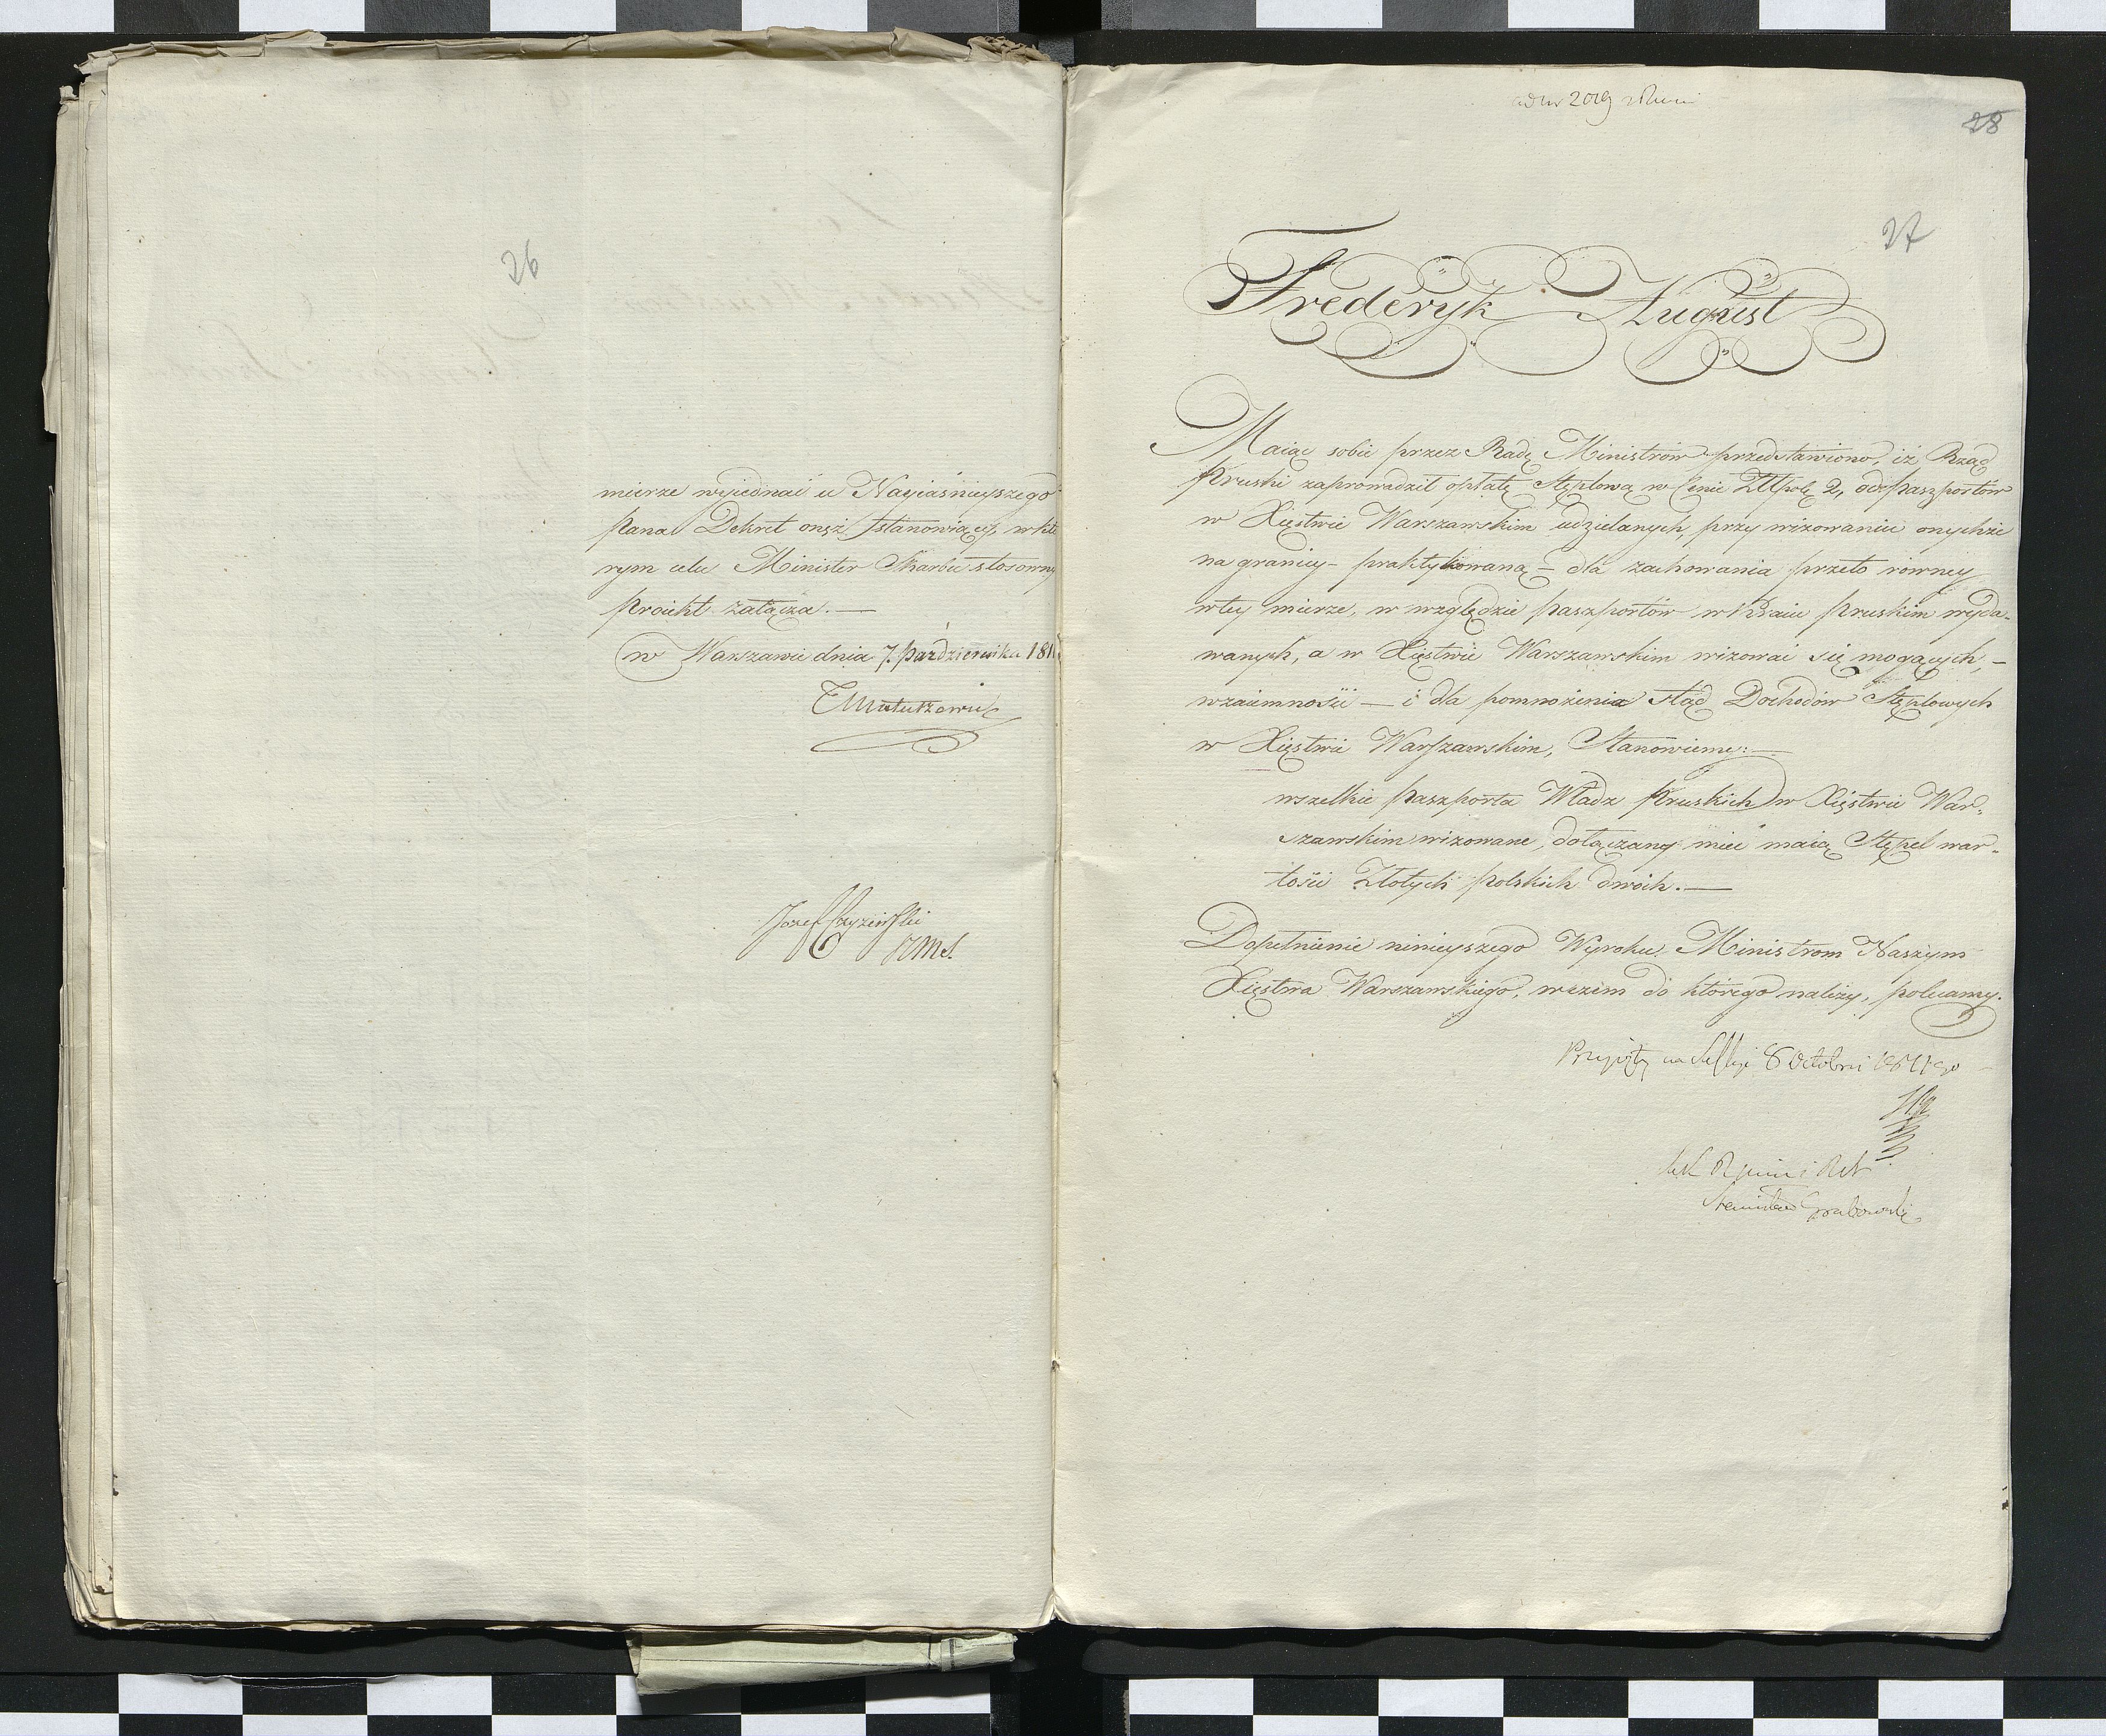 26
mierze wyiednać u Nayiaśnieyszego
Pana Dekret onęż stanowiący, w któ
rym celu Minister Skarbu stosowny
proiekt załącza. —
w Warszawie dnia 7. Października 181
TMatuszewic
Jozef
28
27
Fryderyk August
Maiąc sobie przez Radę Ministrów przedstawiono, iż Rząd
Pruski zaprowadził opłatę stęplową w Cenie Złł.pol. 2, od Paszportów
w Xięstwie Warszawskim udzielanych, przy wizowaniu onychże
na granicy – praktykowaną – dla zachowania przeto równey
w tey mierze, w względzie paszportów w Kraiu pruskim wyda-
wanych, a w Xięstwie Warszawskim wizować się mogących, –
wzaiemności — i dla pomnożenia stąd Dochodów Stęplowych
w Xięstwie Warszawskim, Stanowiemy: —
wszelkie Paszporta Władz Pruskich w Xięstwie War-
szawskim wizowane, dołączany mieć maią Stępel war-
tości Złotych polskich dwóch. —
Dopełnienie ninieyszego Wyroku Ministrom Naszym
Xięstwa Warszawskiego, w czem do którego należy, polecamy.
Przyięty na Sessyi 8 Octobris 1811go
Stanisław Grabowski